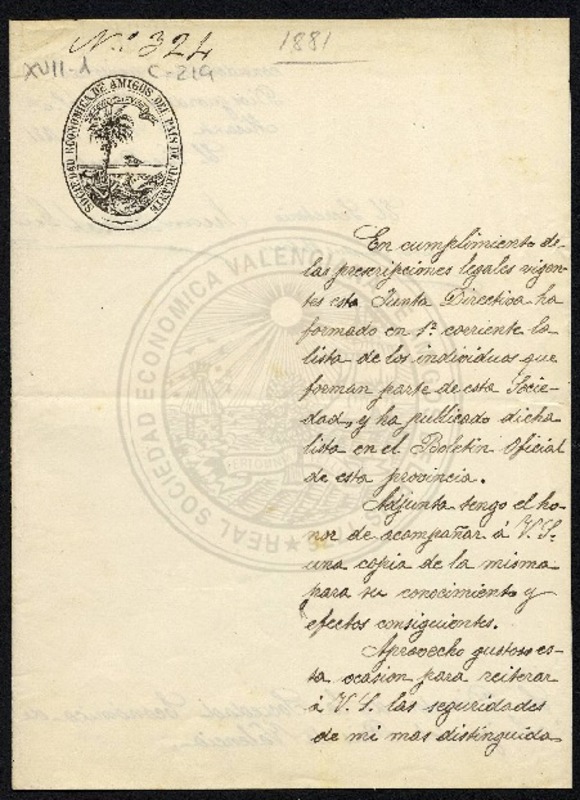 N.º 324
1881
XVII-1
C-219
SOCIEDAD ECONÓMICA DE AMIGOS DEL PAIS DE ALICANTE
En cumplimiento de
las prescripciones legales vigen-
tes esta Junta Directiva ha
formado en 1º corriente la
lista de los individuos que
forman parte de esta Socie-
dad, y ha publicado dicha
lista en el Boletin Oficial
de esta provincia.
Adjunta tengo el ho-
nor de acompañar á V. S.
una copia de la misma
para su conocimiento y
efectos consiguientes.
Aprovecho gustoso es-
ta ocasion para reiterar
á V. S. las seguridades
de mi mas distinguida
REAL SOCIEDAD ECONOMICA VALENCIANA DE